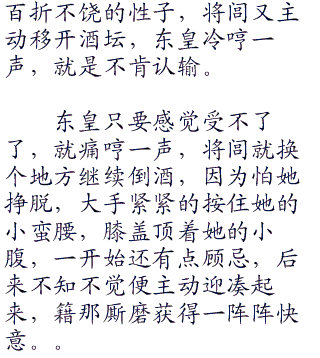 百折不饶的性子，将闾又主
动移开酒坛，东皇冷哼一
声，就是不肯认输。
东皇只要感觉受不了
了，就痛哼一声，将闾就换
个地方继续倒酒，因为怕她
挣脱，大手紧紧的按住她的
小蛮腰，膝盖顶着她的小
腹，一开始还有点顾忌，后
来不知不觉便主动迎凑起
来，籍那厮磨获得一阵阵快
意。。